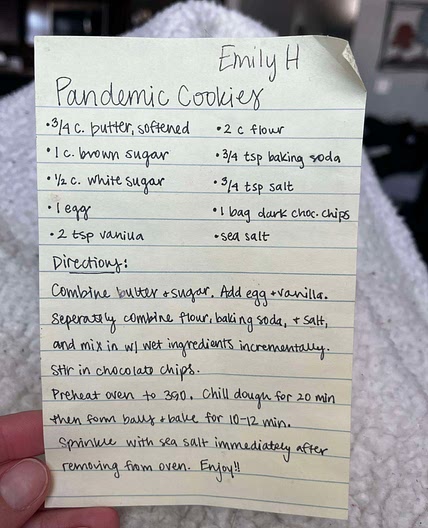 Emily H
Pandemic Cookies
• 3/4 c. butter, softened
• 1 c. brown sugar
• 1/2 c. white sugar
• 1 egg
• 2 tsp vanilla
• 2 c flour
• 3/4 tsp baking soda
• 3/4 tsp salt
• 1 bag dark choc. chips
• sea salt
Directions:
Combine butter + sugar. Add egg + vanilla.
Seperately combine flour, baking soda, + salt,
and mix in w/ wet ingredients incrementally.
Stir in chocolate chips.
Preheat oven to 390. Chill dough for 20 min
then form balls + bake for 10-12 min.
Sprinkle with sea salt immediately after
removing from oven. Enjoy!!